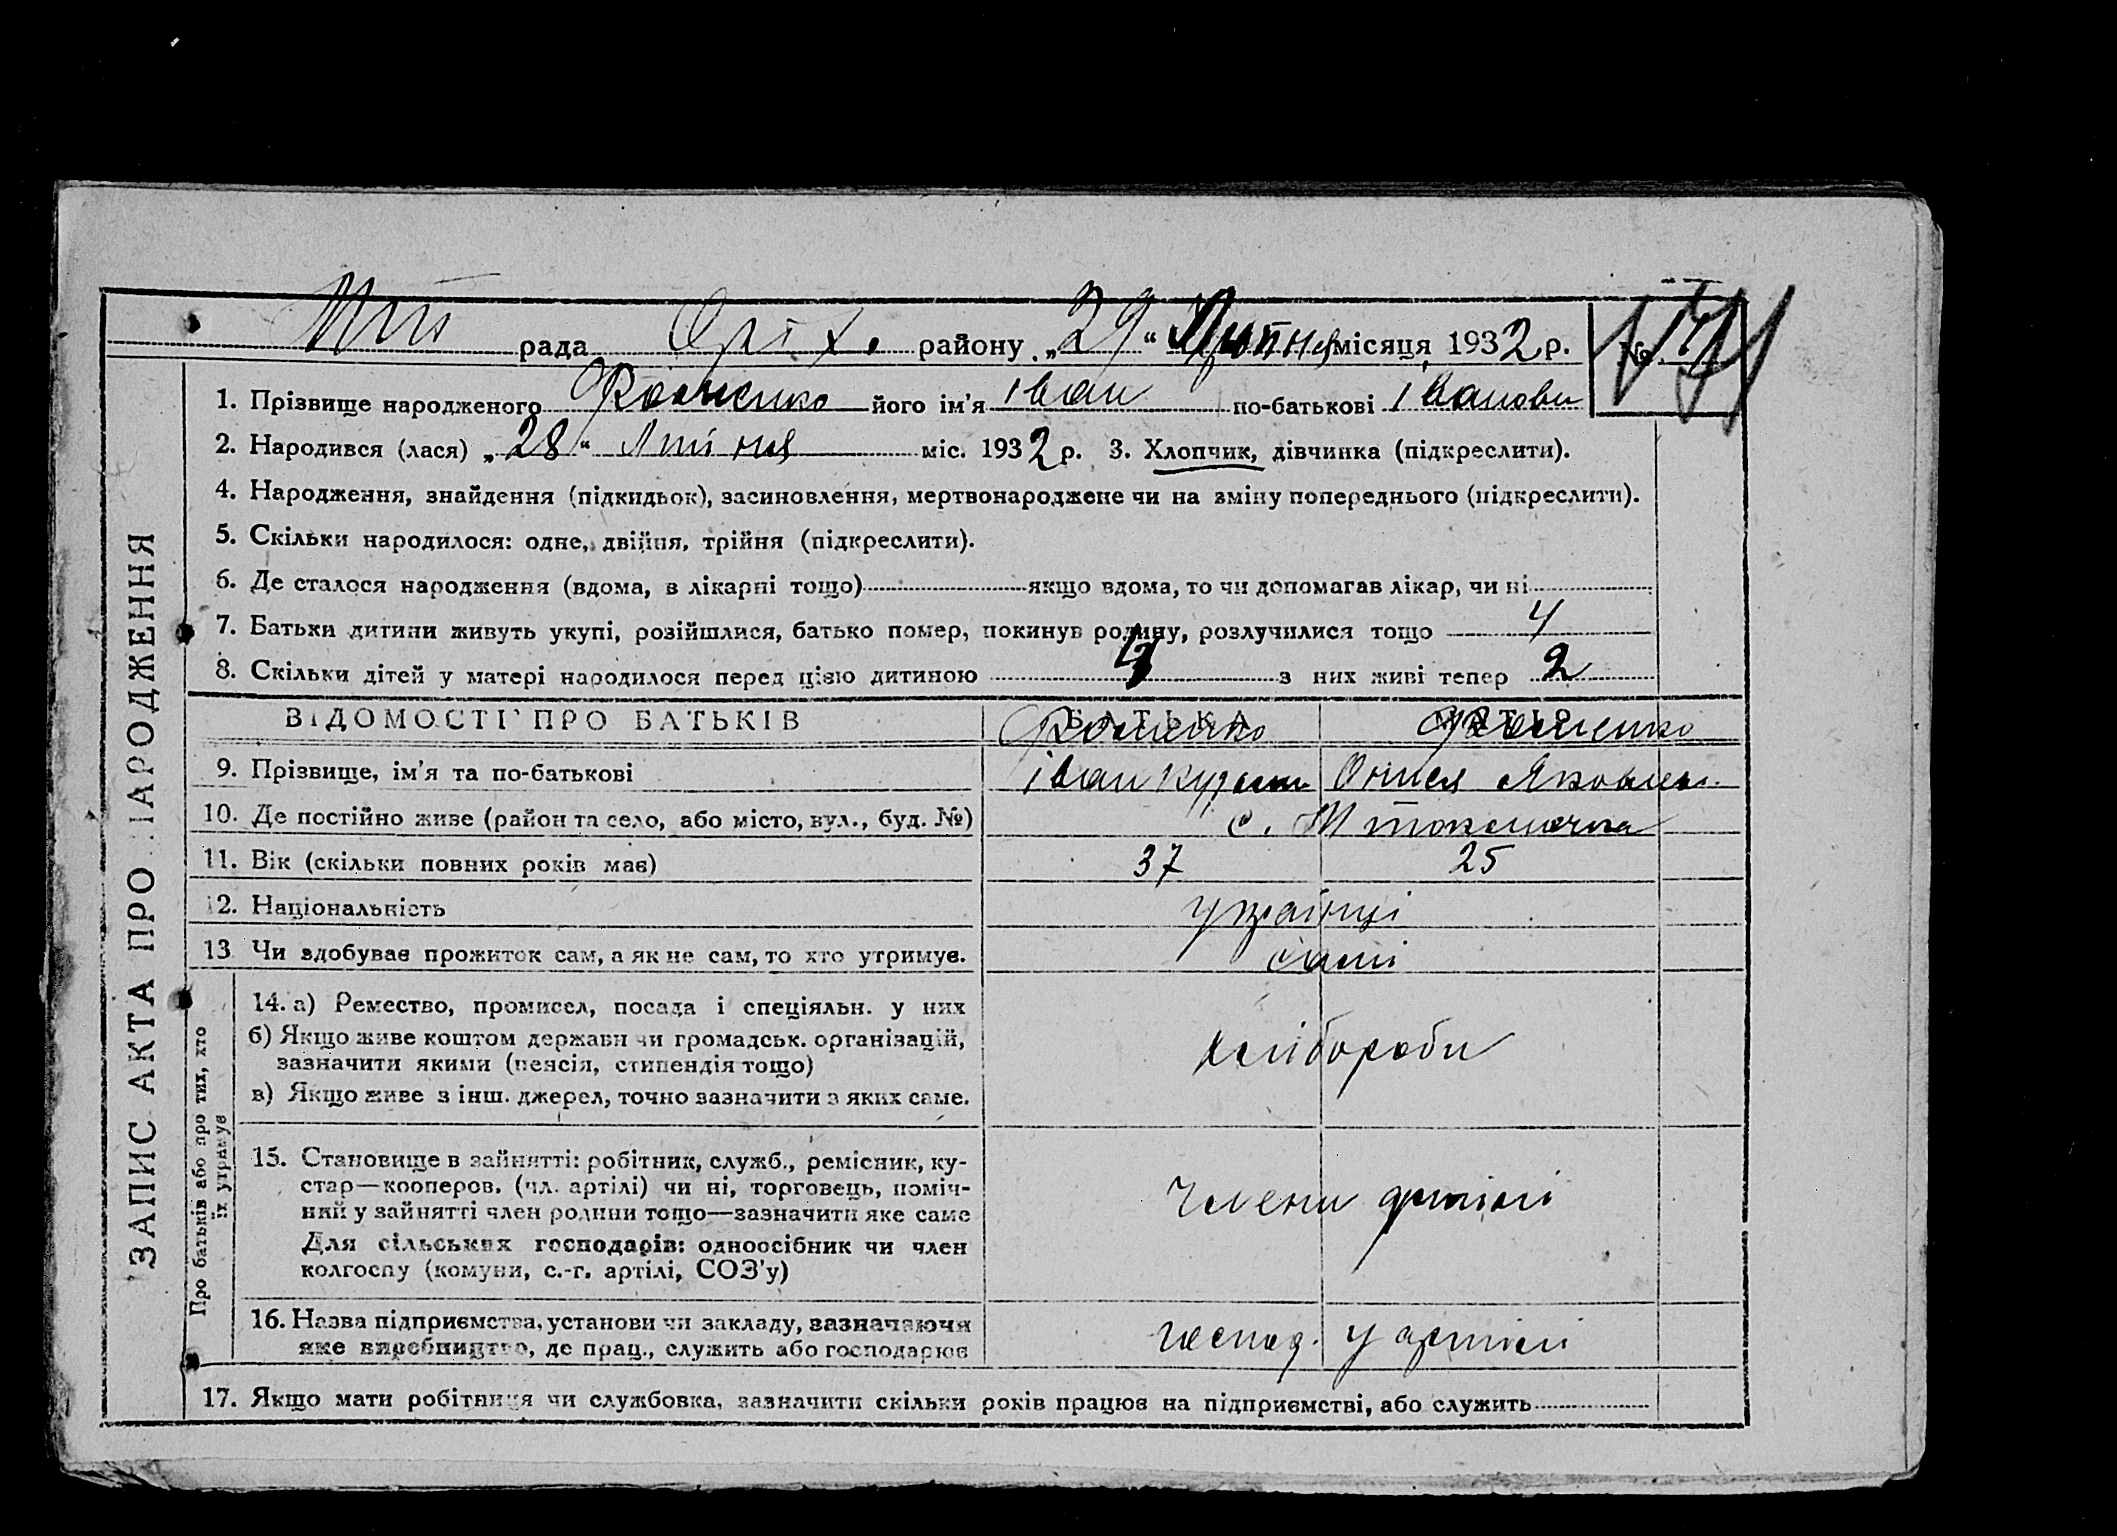 рада Оріх. району „29“ Липня місяця 1932 р. №
1. Прізвище народженого його ім'я Іван по-батькові Іванови
2. Народився (лася) „28“ Липня міс. 1932 р. 3. Хлопчик, дівчинка (підкреслити).
4. Народження, знайдення (підкидьок), засиновлення, мертвонароджене чи на зміну попереднього (підкреслити).
5. Скільки народилося: одне, двійня, трійня (підкреслити).
6. Де сталося народження (вдома, в лікарні тощо) якщо вдома, то чи допомагав лікар, чи ні
7. Батьки дитини живуть укупі, розійшлися, батько помер, покинув родину, розлучилися тощо
8. Скільки дітей у матері народилося перед цією дитиною з них живі тепер 2
ВІДОМОСТІ ПРО БАТЬКІВ БАТЬКА МАТІР
9. Прізвище, ім'я та по-батькові Іван
10. Де постійно живе (район та село, або місто, вул., буд. №) с. М токмачка
11. Вік (скільки повних років має) 37 25
12. Національність українці
13 Чи здобуває прожиток сам, а як не сам, то хто утримує. сами
14. а) Ремество, промисел, посада і спеціяльн. у них хлібороби
б) Якщо живе коштом держави чи громадськ. організацій,
зазначити якими (пенсія, стипендія тощо)
в) Якщо живе з інш. джерел, точно зазначити з яких саме.
15. Становище в зайнятті: робітник, служб., ремісник, ку-
стар—кооперов. (чл. артілі) чи ні, торговець, поміч-
ний у зайнятті член родини тощо—зазначити яке саме
члени артілі
Для сільських господарів: одноосібник чи член
колгоспу (комуни, с.-г. артілі, СОЗ'у)
16. Назва підприємства, установи чи закладу, зазначаючи
яке виробництво, де прац., служить або господарює
господ. у артілі
17. Якщо мати робітниця чи службовка, зазначити скільки років працює на підприємстві, або служить
ЗАПИС АКТА ПРО НАРОДЖЕННЯ
Про батьків або про тих, хто
їх утримує